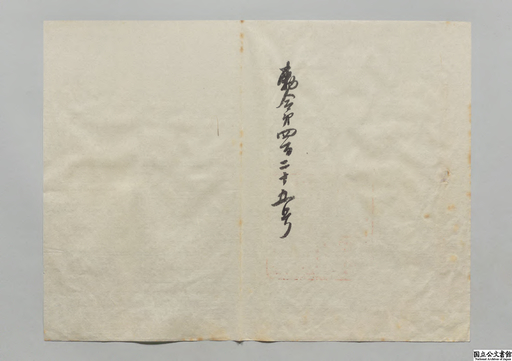 勅令第四百二十五号
国立公文書館
National Archives of Japan